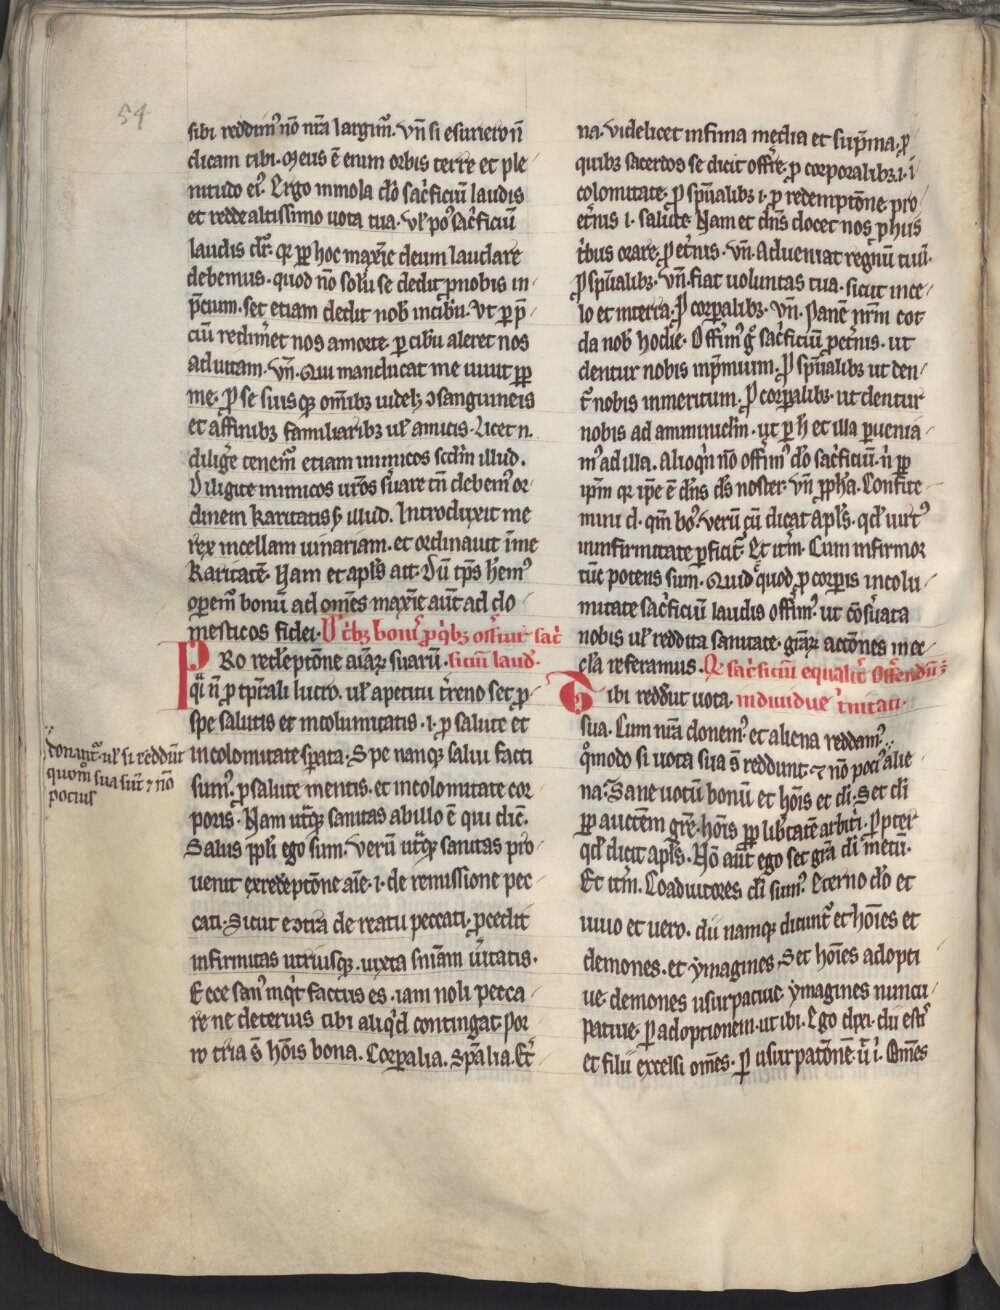 54
sibi reddim᷒ nō nr̄a largim᷒. Vn̄ si esuriero n̄
dicam tibi. Meus ē enim orbis terre et ple
nitudo ei᷒. Ergo immola dō sac̓ficiū laudis
et redde altissimo uota tua. Vł pō sac̓ficiū
laudis dr̄. qr ꝓp hoc maxīe deum laudare
debemus. quod nō solū se dedit ꝓ nobis in
p̄cium. set etiam dedit nob̄ in cibū. Ut ꝑ p̄
ciū redim̓et nos a morte. ꝑ cibū aleret nos
ad uitam. Vn̄. Qui manducat me uiuit ꝓp
me. Ꝓ se suisqꝫ om̄ibꝫ uidelꝫ ↄsanguineis
et affinibꝫ familiaribꝫ uł amicis. Licet n.
dilig̓e tenem᷒ etiam inimicos scd̄m illud.
Diligite inimicos ur̄os s̓uare tn̄ debem᷒ or
dinem karitatis ẜ illud. Introduxit me
rex in cellam uinariam. et ordinauit ī me
karitatē. Nam et apl̄s ait. Dū tp̄s hēm᷒
operem᷒ bonū ad om̄es maxīe aūt ad do
mesticos fidei. De t̓bꝫ bonis ꝓ q̓bꝫ offert᷒ sac̓
Pro redēptōne aīaꝝ suarū. ficiū laud̄.
qͥ n̄ ꝓ tp̄rali lucro. uł apetitu t̓reno set ꝓ
spe salutis et incolumitatis .i. ꝓ salute et
incolomitate sp̄ata. Spe nanque salui facti
sum᷒. ꝓ salute mentis. et incolomitate cor
poris. Nam ut̓qꝫ sanitas ab illo ē qui dic̄.
Salus ppl̄i ego sum. Verū ut̓qꝫ sanitas pro
uenit ex redēptōne aīe .i. de remissione pec
cati. Sicut eↄtra de reatu peccati. ꝓcedit
infirmitas utriusqꝫ. iuxta sn̄iam u̓itatis.
Ecce san᷒ inqͥt factus es. iam noli pecca
re ne deterius tibi aliqͥd contingat. Por
ro tria s̄ hōis bona. Corꝑalia. Sp̄alia. Et̓
na. Videlicet infima media et sup̄ma. ꝓ
quibꝫ sacerdos se dicit offr̄e. ꝓ corporalibꝫ .i. ī
colomitate. Ꝓ sp̄ualibꝫ .i. ꝓ redemptōne. pro
et̓nis .i. salute. Nam et dn̄s docet nos ꝓ hiis
t̓bus orare. ꝓ et̓nis. Vn̄. Adueniat regnū tuū.
Ꝓ sp̄ualibꝫ. Vn̄. fiat uoluntas tua. sicut in ce
lo et in terra. Ꝓ corꝑalibꝫ. Vn̄. Panē nr̄m cot
da nob̄ hodie. Offim᷒ gͦ sac̓ficiū ꝓ et̓nis. ut
dentur nobis in p̄mium. Ꝓ sp̄ualibꝫ ut den
t̄ nobis in meritum. Ꝓ corꝑalibꝫ. ut dentur
nobis ad amminicl̄m. ut ꝑ h̄ et illa ꝑuenia
m᷒ ad illa. Alioqͥn nō offim᷒ dō sac̓ficiū. n̄ ꝓp
ip̄m qr ip̄e ē dn̄s ds̄ noster. Vn̄ ꝓph̄a. Confite
mini d. qm̄ bo᷒. Verū cū dicat apl̄s. qd̄ uirt᷒
in infirmitate ꝑficit᷒. Et it̄m. Cum infirmor
tūc potens sum. Quid ē quod ꝓ corꝑis incolu
mitate sac̓ficiū laudis offim᷒. ut cōs̓uata
nobis uł reddita sanitate. gr̄aꝝ actōnes in ec
cl̄a referamus. Qr sac̓ficiū equalit̓ offerendū ē
Tibi redd̄ut uota. indiuidue t̓nitati.
sua. Cum nr̄a donem᷒. et aliena reddam᷒.
qͦmodo si uota sua s̄ reddunt. ⁊ nō poci᷒ alie
na. Sane uotū bonū et hōis et di᷒. Set di᷒
ꝓp auctem gr̄e. hōis ꝓp lib̓tatē arbit̓i. Ꝓpter
qd̄ dicit apl̄s. Nō aūt ego set gr̄a di᷒ mecū.
Et it̄m. Coadiutores di᷒ sum᷒. Eterno dō et
uiuo et uero. dii namqꝫ dicunt᷒ et hōies et
demones. et ymagines. Set hōies adopti
ue. demones usurpatiue. ymagines nuncu
patiue. Ꝑ adoptionem. ut ibi. Ego dixi. dii estis
et filii excelsi omēs. Ꝑ usurpatōnē. ū ī. Om̄es
donant᷒. uł si reddūt᷒
quom̄ sua sūt ⁊ nō
pocius